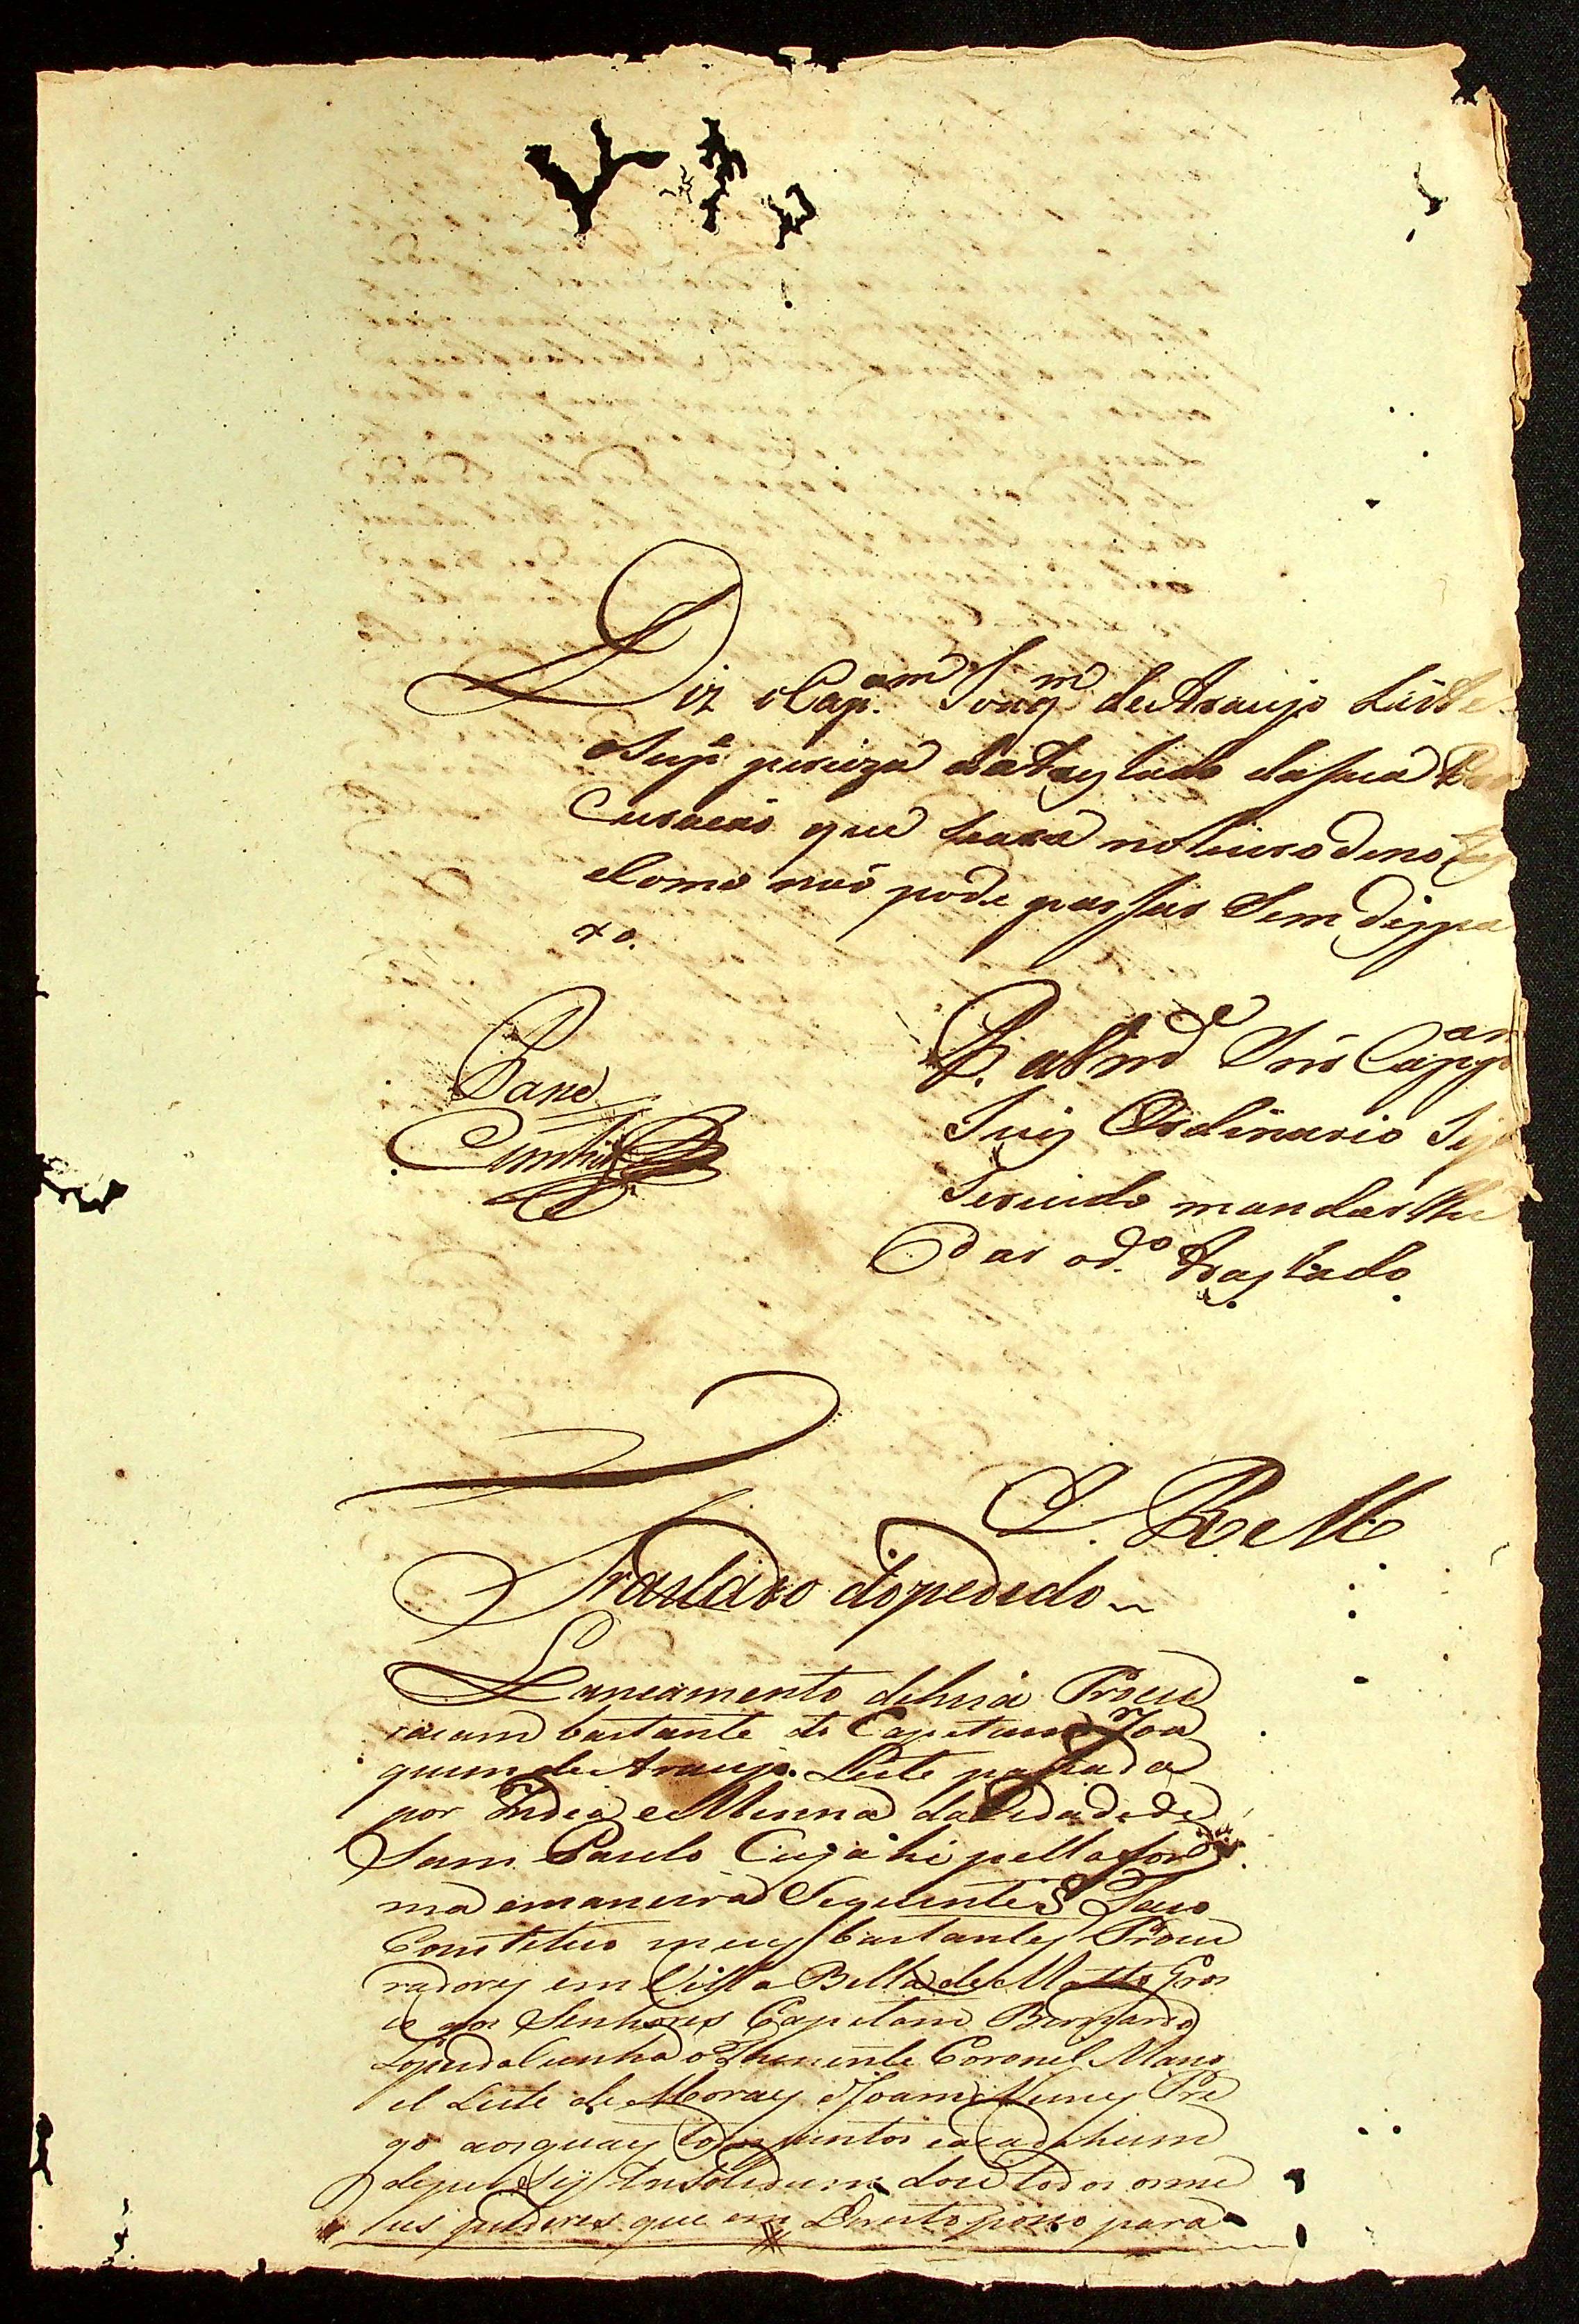 Diz o Cap.am Joaq.m de Araujo Leite
o Sup.e perciza do treslado da sua Pro
Curacaõ que Seaxa no livro de notas
e Como naõ pode passar Sem dispa
xo.
Passe
Cunha
P. a Vm.ce Snr Cap.am
Juiz Ordinario Seja
Servido mandar lhe
Dar o d.o Traslado
E. R. M.ce
Traslado do pedido
Lancamento de huã Procu
racam bastante do Capetam Joa
quim de Araujo Leite passada
por India e Minna da Cidade de
Sam Paulo Cuja hé pella for
ma e maneira Seguintes Faco
Constetuo meus bastantes Procu
radores em Villa Bella de Matto Gros
so aos Senhores Capetam Bernardo
Lopes da Cunha o Thenente Coronel Mano
el Leite de Moraes Joam Nunes Pre
go aos quais todos juntos e a cada hum
de per Sy In Solidum dou todos os me
us puderes que em Dereito posso para